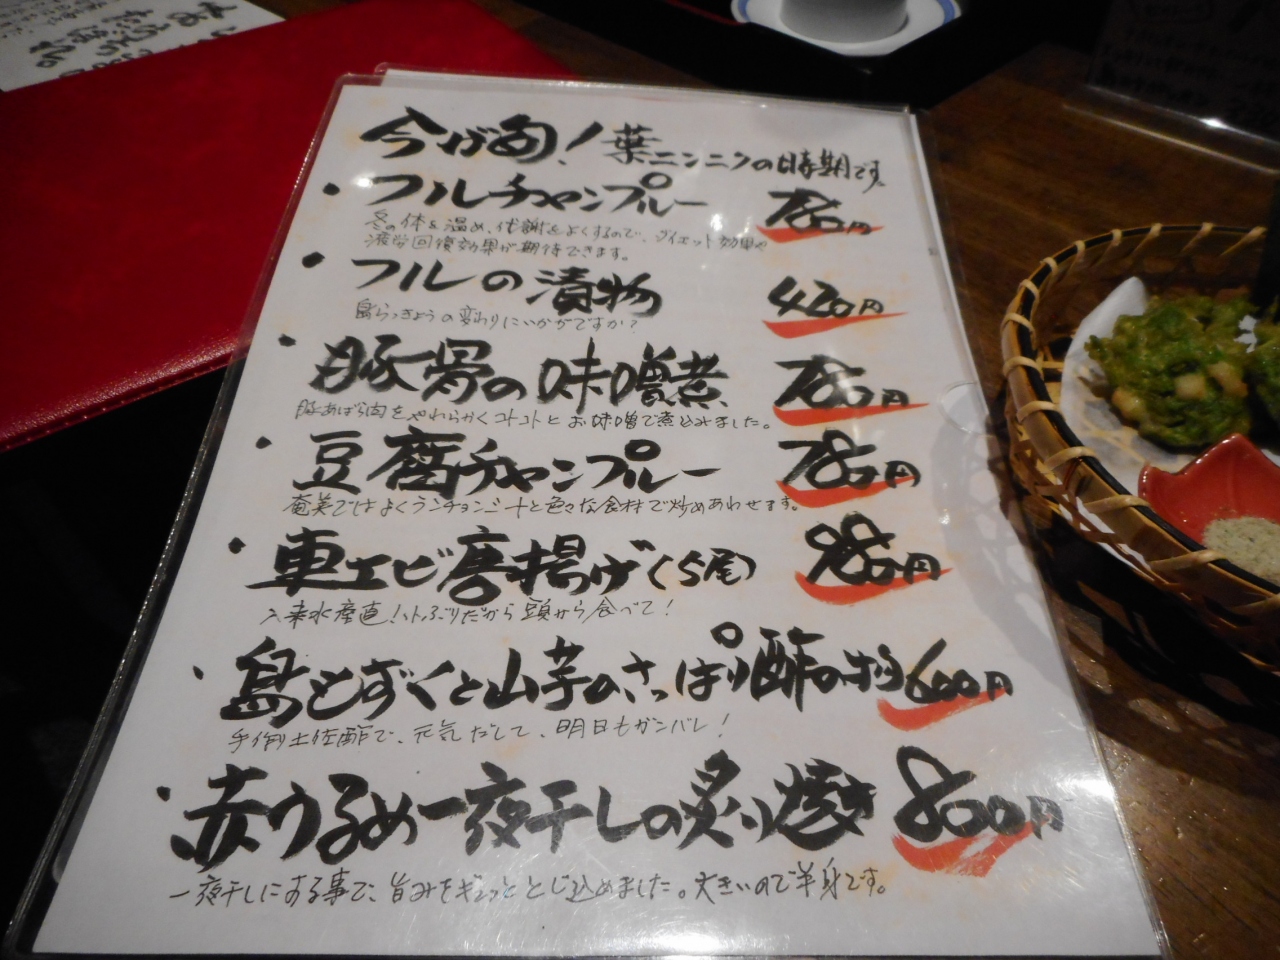 今が旬!葉ニンニクの時期です。
・フルチャンプルー 780円
冬の体を温め、代謝をよくするので、ダイエット効果や
疲労回復効果が期待できます。
・フルの漬物 420円
島らっきょうの変わりにいかがですか?
・豚骨の味噌煮 780円
豚あばら肉をやわらかくコトコトとお味噌で煮込みました。
・豆腐チャンプルー 780円
奄美ではよくランチョンミートと色々な食材で炒めあわせます。
・車エビ唐揚げ(5尾) 980円
入来水産直!小ぶりだから頭から食べて!
・島もずくと山芋のさっぱり酢の物 600円
手作り土佐酢で、元気だして、明日もガンバレ!
・赤うるめ一夜干しの炙り焼き 800円
一夜干しにする事で、旨みをギュッととじ込めました。大きいので半身です。